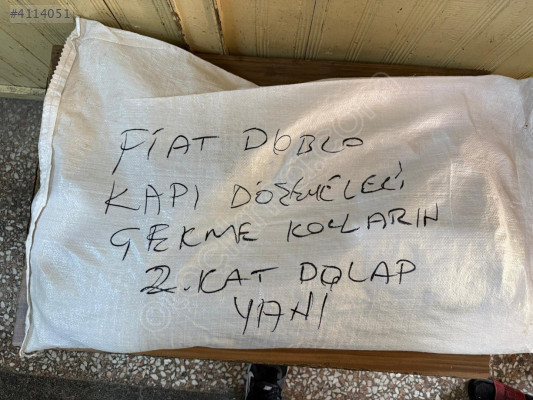 #4114051
FİAT DOBLO
KAPI DÖŞEMELERİ
ÇEKME KOLLARIN
2. KAT DOLAP
YANI